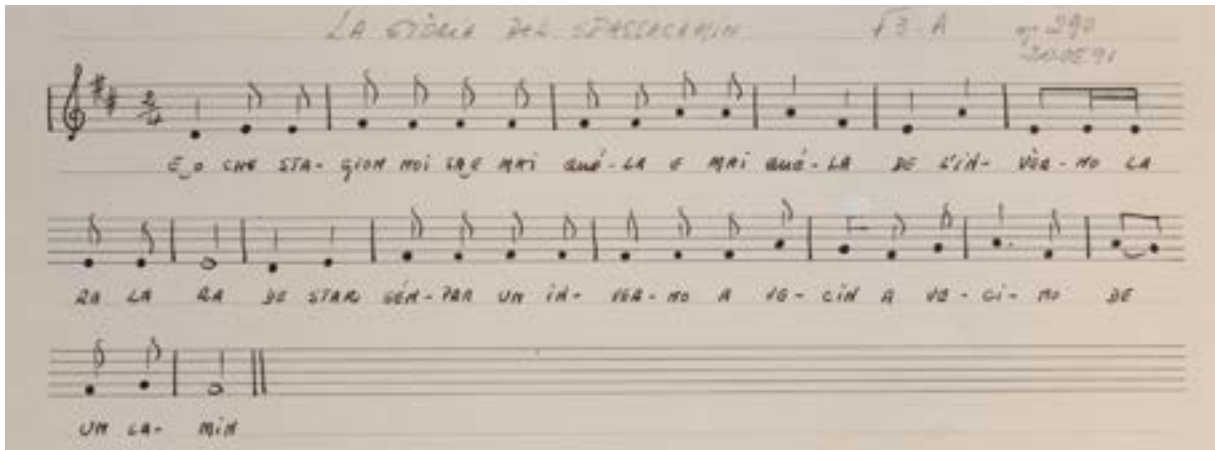 LA STORIA DEL SPASSACAMIN √3-A nº 290
20.05.91
2/4
E_O CHE STA- GION MOI SA_E MAI QUÉ-LA E MAI QUÉ-LA DE L'IN- VÈR-NO LA
RA LA RA DE STAR SÉM-PAR UN IN- VER-NO A VE-CIN A VE-CI-NO DE
UN CA- MIN